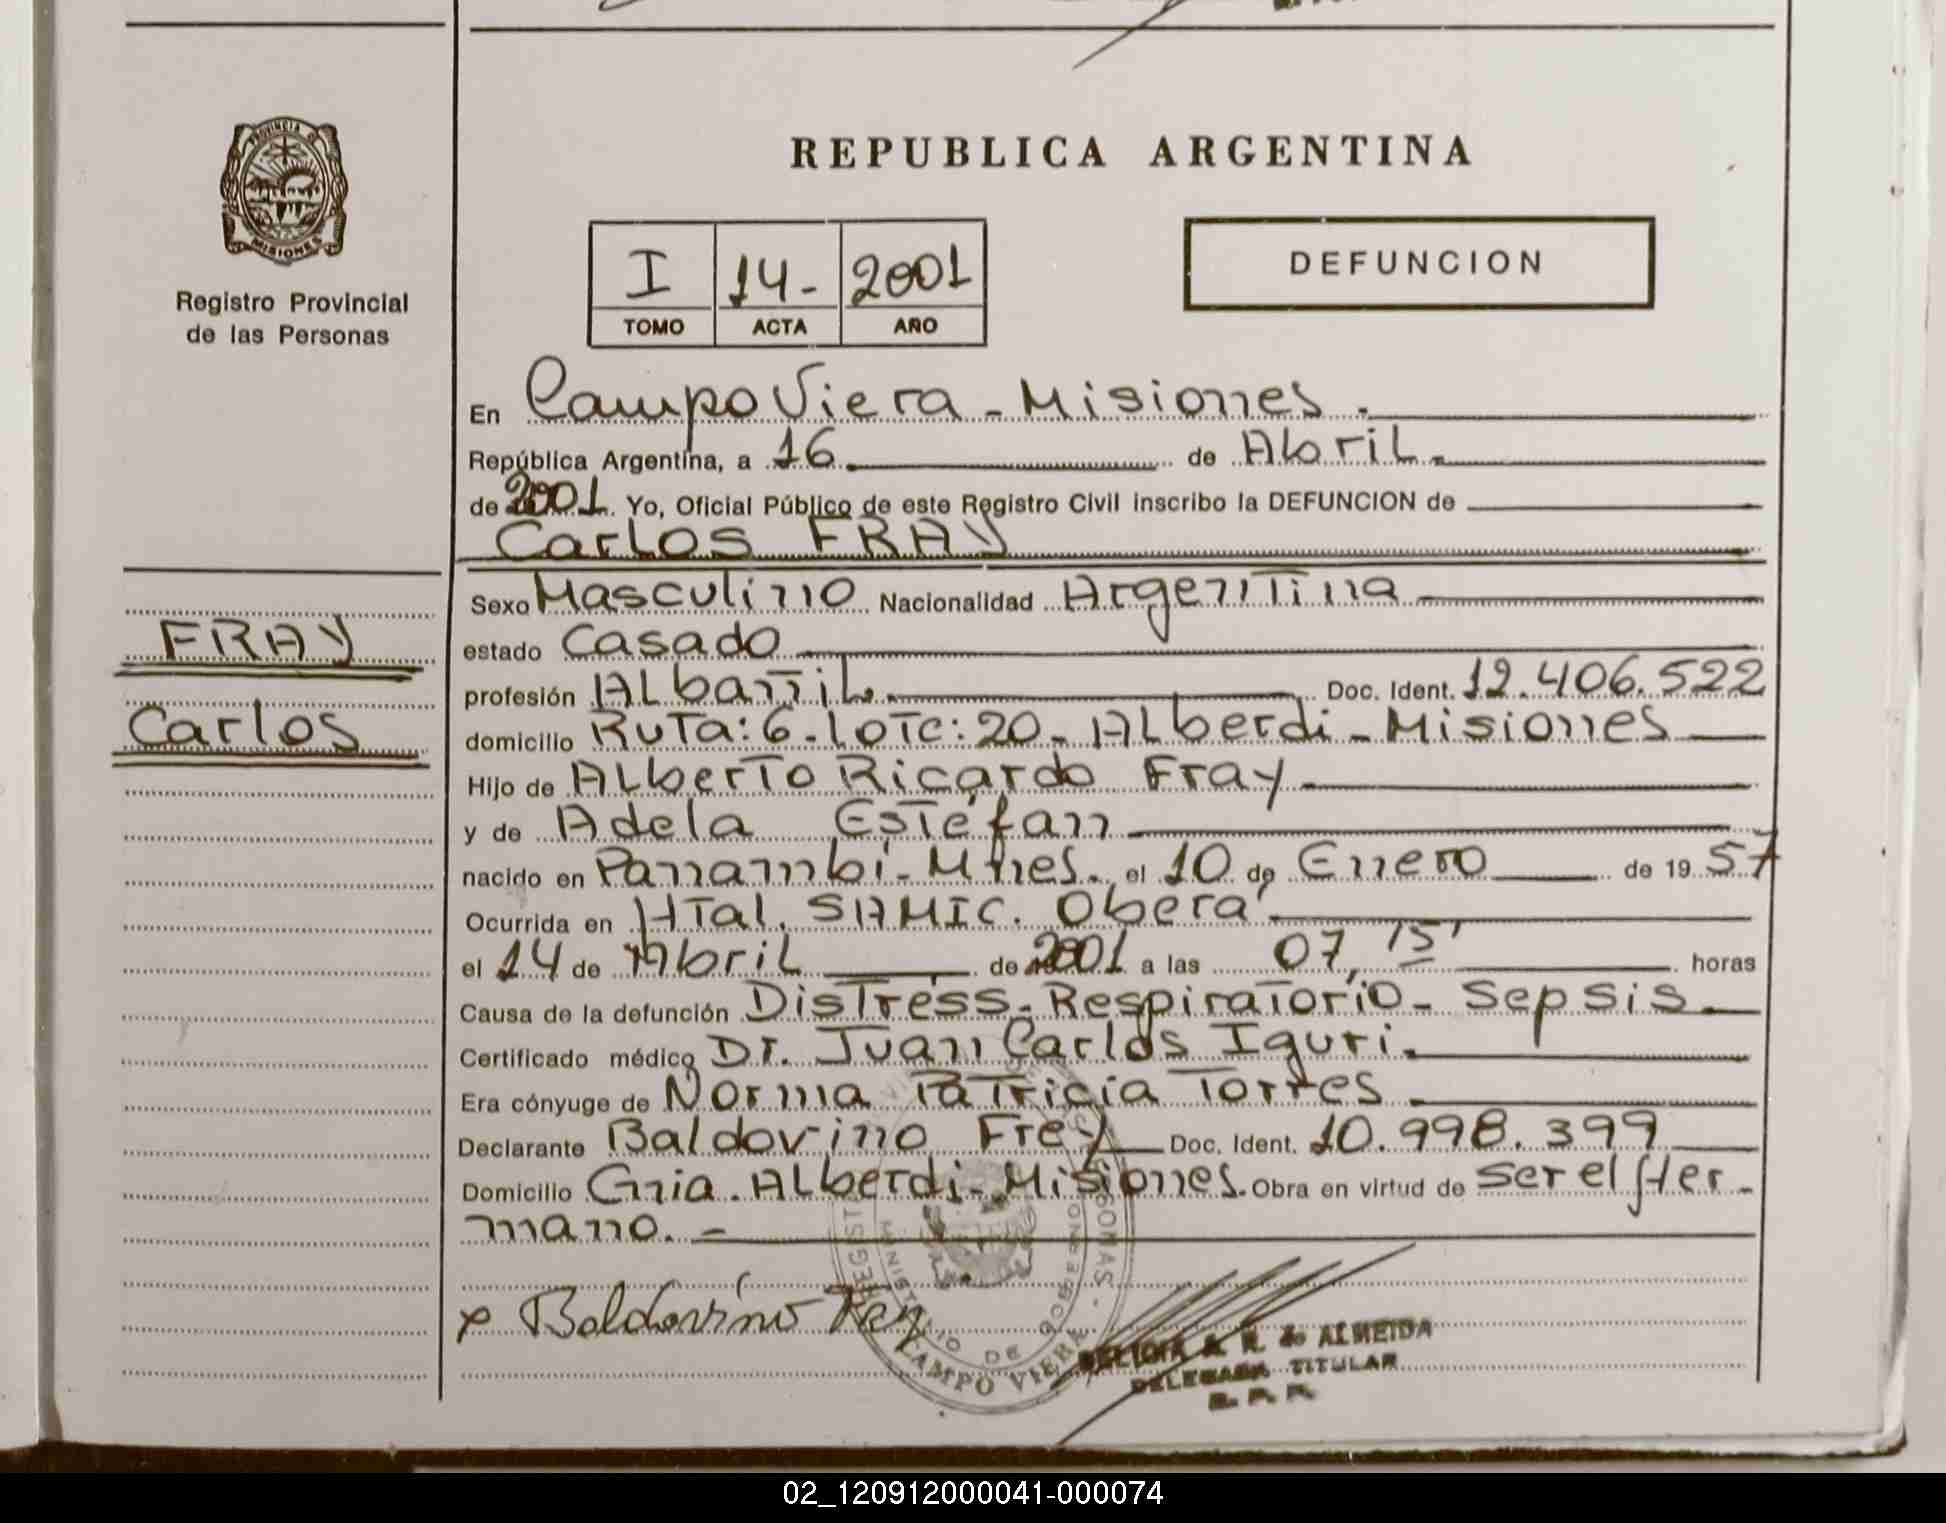 REPUBLICA ARGENTINA
PROVINCIA DE
MISIONES
Registro Provincial
de las Personas
I 14- 2001
TOMO ACTA AÑO
DEFUNCION
En Campo Viera - Misiones.
República Argentina, a 16 de Abril.
de 2001. Yo, Oficial Público de este Registro Civil inscribo la DEFUNCION de
Carlos FRAY
FRAY
Carlos
Sexo Masculino Nacionalidad Argentina
estado Casado
profesión Albañil. Doc. Ident. 12.406.522
domicilio Ruta: 6. Lote: 20 - Alberdi - Misiones
Hijo de Alberto Ricardo Fray
y de Adela Estéfan
nacido en Panambí - Mnes. el 10 de Enero de 1957
Ocurrida en Htal. SAMIC. Oberá
el 14 de Abril de 2001 a las 07,15' horas
Causa de la defunción Distréss - Respiratorio - Sepsis
Certificado médico Dr. Juan Carlos Iguri.
Era cónyuge de Norma Patricia Torres
Declarante Baldovino Frey Doc. Ident. 10.998.399
Domicilio Cnia. Alberdi - Misiones. Obra en virtud de ser el Her-
mano. -
x Baldovino Frey
MINISTERIO DE GOBIERNO
CAMPO VIERA
DELICIA A. R. de ALMEIDA
DELEGADA TITULAR
R. P. P.
02_120912000041-000074